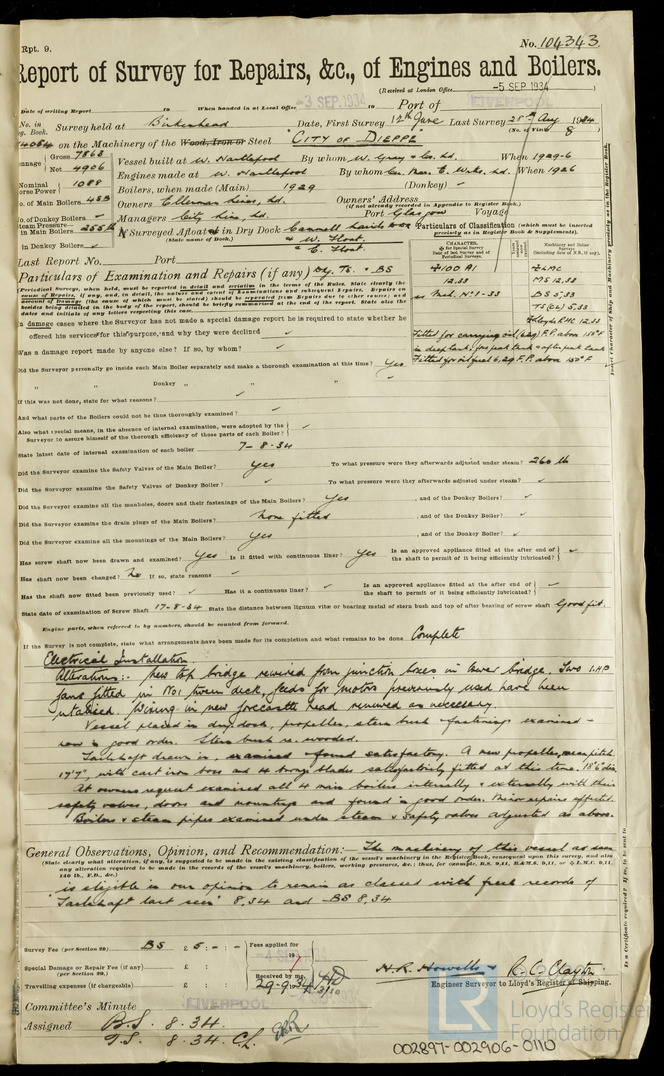 Rpt. 9.
No. 104343
Report of Survey for Repairs, &c., of Engines and Boilers.
(Received at London Office -5 SEP. 1934
Date of writing Report to When handed in at Local Office -3 SEP. 1934 to Port of LIVERPOOL
No. in Reg. Book. Survey held at Birkenhead Date, First Survey 12th June Last Survey 28th Aug 1934
(No. of Visits 8
on the Machinery of the Wood, Iron or Steel "CITY OF DIEPPE"
Gross 7863
Net 4906
Vessel built at W. Hartlepool By whom W. Gray & Co. Ld. When 1929-6
Engines made at W. Hartlepool By whom When 1926
Nominal Horse Power 1088
Boilers, when made (Main) 1929 (Donkey) -
No. of Main Boilers 4SB
Owners Ellerman Lines, Ld. Owners' Address
(if not already recorded in Appendix to Register Book.)
No. of Donkey Boilers -
Managers City Line, Ld. Port Glasgow Voyage
Steam Pressure in Main Boilers 255 lb
If Surveyed Afloat or in Dry Dock
(State name of Dock.)
& W. Float.
& E. Float.
in Donkey Boilers -
Particulars of Classification (which must be inserted precisely as in Register Book & Supplements).
CHARACTER.
for Special Survey
Date of last Survey and of Periodical Surveys.
Machinery and Boiler Surveys
(including date of N.B., if any).
+100 A1
12,33
+LMC
MS 12,33
BS 5,33
TS(CL) 5,33
+Lloyd's RMC 12,33
Fitted for oil fuel 6,29 F.P. above 150°F
Last Report No. Port
Particulars of Examination and Repairs (if any) Dg. TS. + BS
(Periodical Surveys, when held, must be reported in detail and seriatim in the terms of the Rules. State clearly the cause of Repairs, if any, and, in detail, the nature and extent of Examinations and subsequent Repairs. Repairs on account of Damage (the cause of which must be stated) should be separated from Repairs due to other causes; and besides being detailed in the body of the report, should be briefly summarised at the end of the report. State also the dates and initials of any letters respecting this case.
In damage cases where the Surveyor has not made a special damage report he is required to state whether he
offered his services for this purpose, and why they were declined ✓
Was a damage report made by anyone else? If so, by whom? ✓
Did the Surveyor personally go inside each Main Boiler separately and make a thorough examination at this time? Yes
" " Donkey " " " ✓
If this was not done, state for what reasons? ✓
And what parts of the Boilers could not be thus thoroughly examined? ✓
Also what special means, in the absence of internal examination, were adopted by the Surveyor to assure himself of the thorough efficiency of those parts of each Boiler? ✓
State latest date of internal examination of each boiler 7-8-34
Did the Surveyor examine the Safety Valves of the Main Boiler? Yes To what pressure were they afterwards adjusted under steam? 260 lb
Did the Surveyor examine the Safety Valves of Donkey Boiler? ✓ To what pressure were they afterwards adjusted under steam? ✓
Did the Surveyor examine all the manholes, doors and their fastenings of the Main Boilers? Yes, and of the Donkey Boilers? ✓
Did the Surveyor examine the drain plugs of the Main Boilers? None fitted, and of the Donkey Boilers? ✓
Did the Surveyor examine all the mountings of the Main Boilers? Yes, and of the Donkey Boiler? ✓
Has screw shaft now been drawn and examined? Yes Is it fitted with continuous liner? Yes Is an approved appliance fitted at the after end of the shaft to permit of it being efficiently lubricated? ✓
Has shaft now been changed? No If so, state reasons ✓
Has the shaft now fitted been previously used? ✓ Has it a continuous liner? ✓ Is an approved appliance fitted at the after end of the shaft to permit of it being efficiently lubricated? ✓
State date of examination of Screw Shaft 17-8-34 State the distance between lignum vitæ or bearing metal of stern bush and top of after bearing of screw shaft Good fit.
Engine parts, when referred to by numbers, should be counted from forward.
If the Survey is not complete, state what arrangements have been made for its completion and what remains to be done Complete
Electrical Installation.
Alterations:- New top bridge rewired from junction boxes in lower bridge. Two 1.HP
fans fitted in No1 tween deck, feeds for motors previously used have been
utilised. Wiring in new forecastle head renewed as necessary.
Vessel placed in dry dock, propeller, stern bush & fastenings examined -
now in good order. Stern bush re-wooded.
Tailshaft drawn in, examined & found satisfactory. A new propeller, mean pitch
17'7", with cast iron boss and 4 bronze blades satisfactorily fitted at this time. 18'6" dia.
At owners request examined all 4 main boilers internally & externally with their
safety valves, doors and mountings and found in good order. Minor repairs effected.
Boilers & steam pipes examined under steam & safety valves adjusted as above.
General Observations, Opinion, and Recommendation:- The machinery of this vessel as seen
(State clearly what alteration, if any, is suggested to be made in the existing classification of the vessel's machinery in the Register Book, consequent upon this survey, and also any alteration required to be made in the records of the vessel's machinery, boilers, working pressures, &c.; thus, for example, B.S. 9,11, B.&M.S. 9,11, or L.M.C. 9,11, 140 lb., F.D., &c.)
is eligible in our opinion to remain as classed with fresh records of
"Tailshaft last seen" 8,34 and -BS 8,34
Survey Fee (per Section 29) BS £ 5 : - : - Fees applied for
Special Damage or Repair Fee (if any) (per Section 29.) £ : :
Travelling expenses (if chargeable) £ : :
Received by me,
29-9-34
H.R. Howells & R.C. Clayton
Engineer Surveyor to Lloyd's Register of Shipping.
LIVERPOOL
Committee's Minute
Assigned B.S. 8.34.
T.S. 8.34. CL
LR Lloyd's Register Foundation
002897-002906-0110